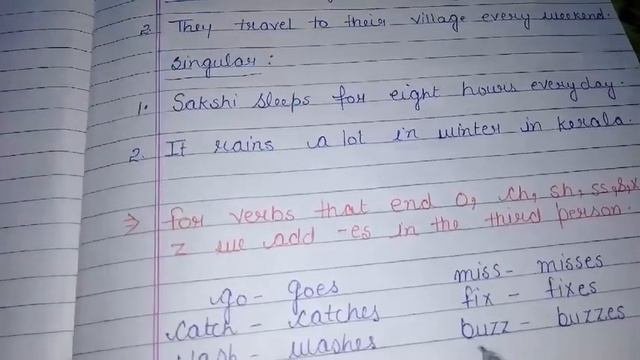 2. They travel to their village every weekend.
Singular:
1. Sakshi sleeps for eight hours everyday.
2. It rains a lot in winter in Kerala.
⇒ for verbs that end o, ch, sh, ss, s, x
z we add -es in the third person.
go - goes
catch - catches
wash - washes
miss - misses
fix - fixes
buzz - buzzes